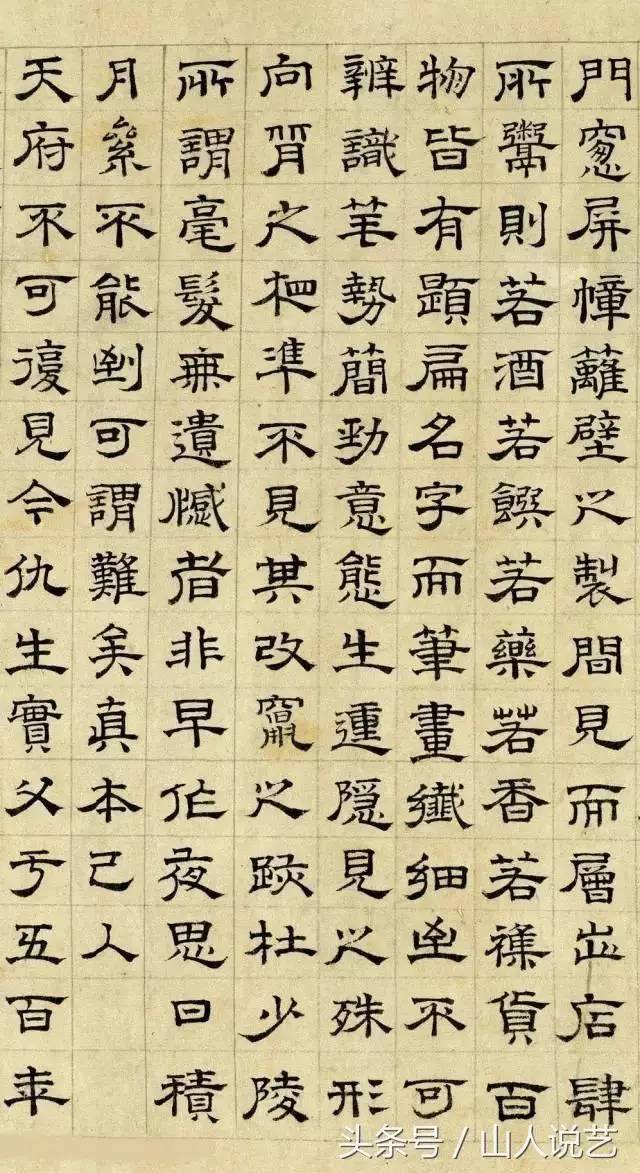 門窓屏幛籬壁之製間見而層出店肆
所鬻則若酒若饌若藥若香若雜貨百
物皆有題扁名字而筆畫纖細至不可
辨識筆勢簡勁意態生運隱見之殊形
向背之相準不見其改竄之跡杜少陵
所謂毫髮無遺憾者非早作夜思日積
月絫不能到可謂難矣真本已入
天府不可復見今仇生實父于五百年
头条号／山人说艺